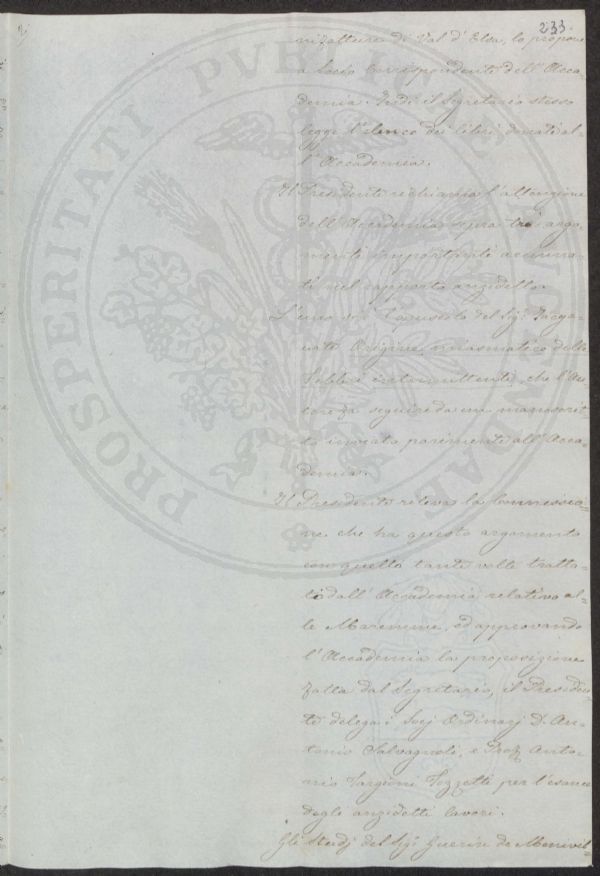 233.
nifatture di Val d'Elsa, lo propone
a Socio Corrispondente dell'Acca-
demia. Indi il Segretario stesso
legge l'elenco dei libri donati al-
l'Accademia.
Il Presidente richiama l'attenzione
dell'Accademia sopra tre argo-
menti importanti accenna-
ti nel rapporto anzidetto.
L'uno è l'opuscolo del Sig.
Origine miasmatica delle
Febbri intermittenti, che l'Au-
tore fa seguire da un manoscrit-
to inviato parimente all'Acca-
demia.
Il Presidente rileva la connessio-
ne che ha questo argomento
con quello tante volte tratta-
to dall'Accademia relativo al-
le Maremme, ed approvando
l'Accademia la proposizione
fatta dal Segretario, il Presiden-
te delega i Socj Ordinarj D. An-
tonio Salvagnoli, e Prof. Anto-
nio Targioni Tozzetti per l'esame
degli anzidetti lavori.
Gli studj del Sig. Guerin de Menivil-
PROSPERITATI PVBLICAE AVGENDAE